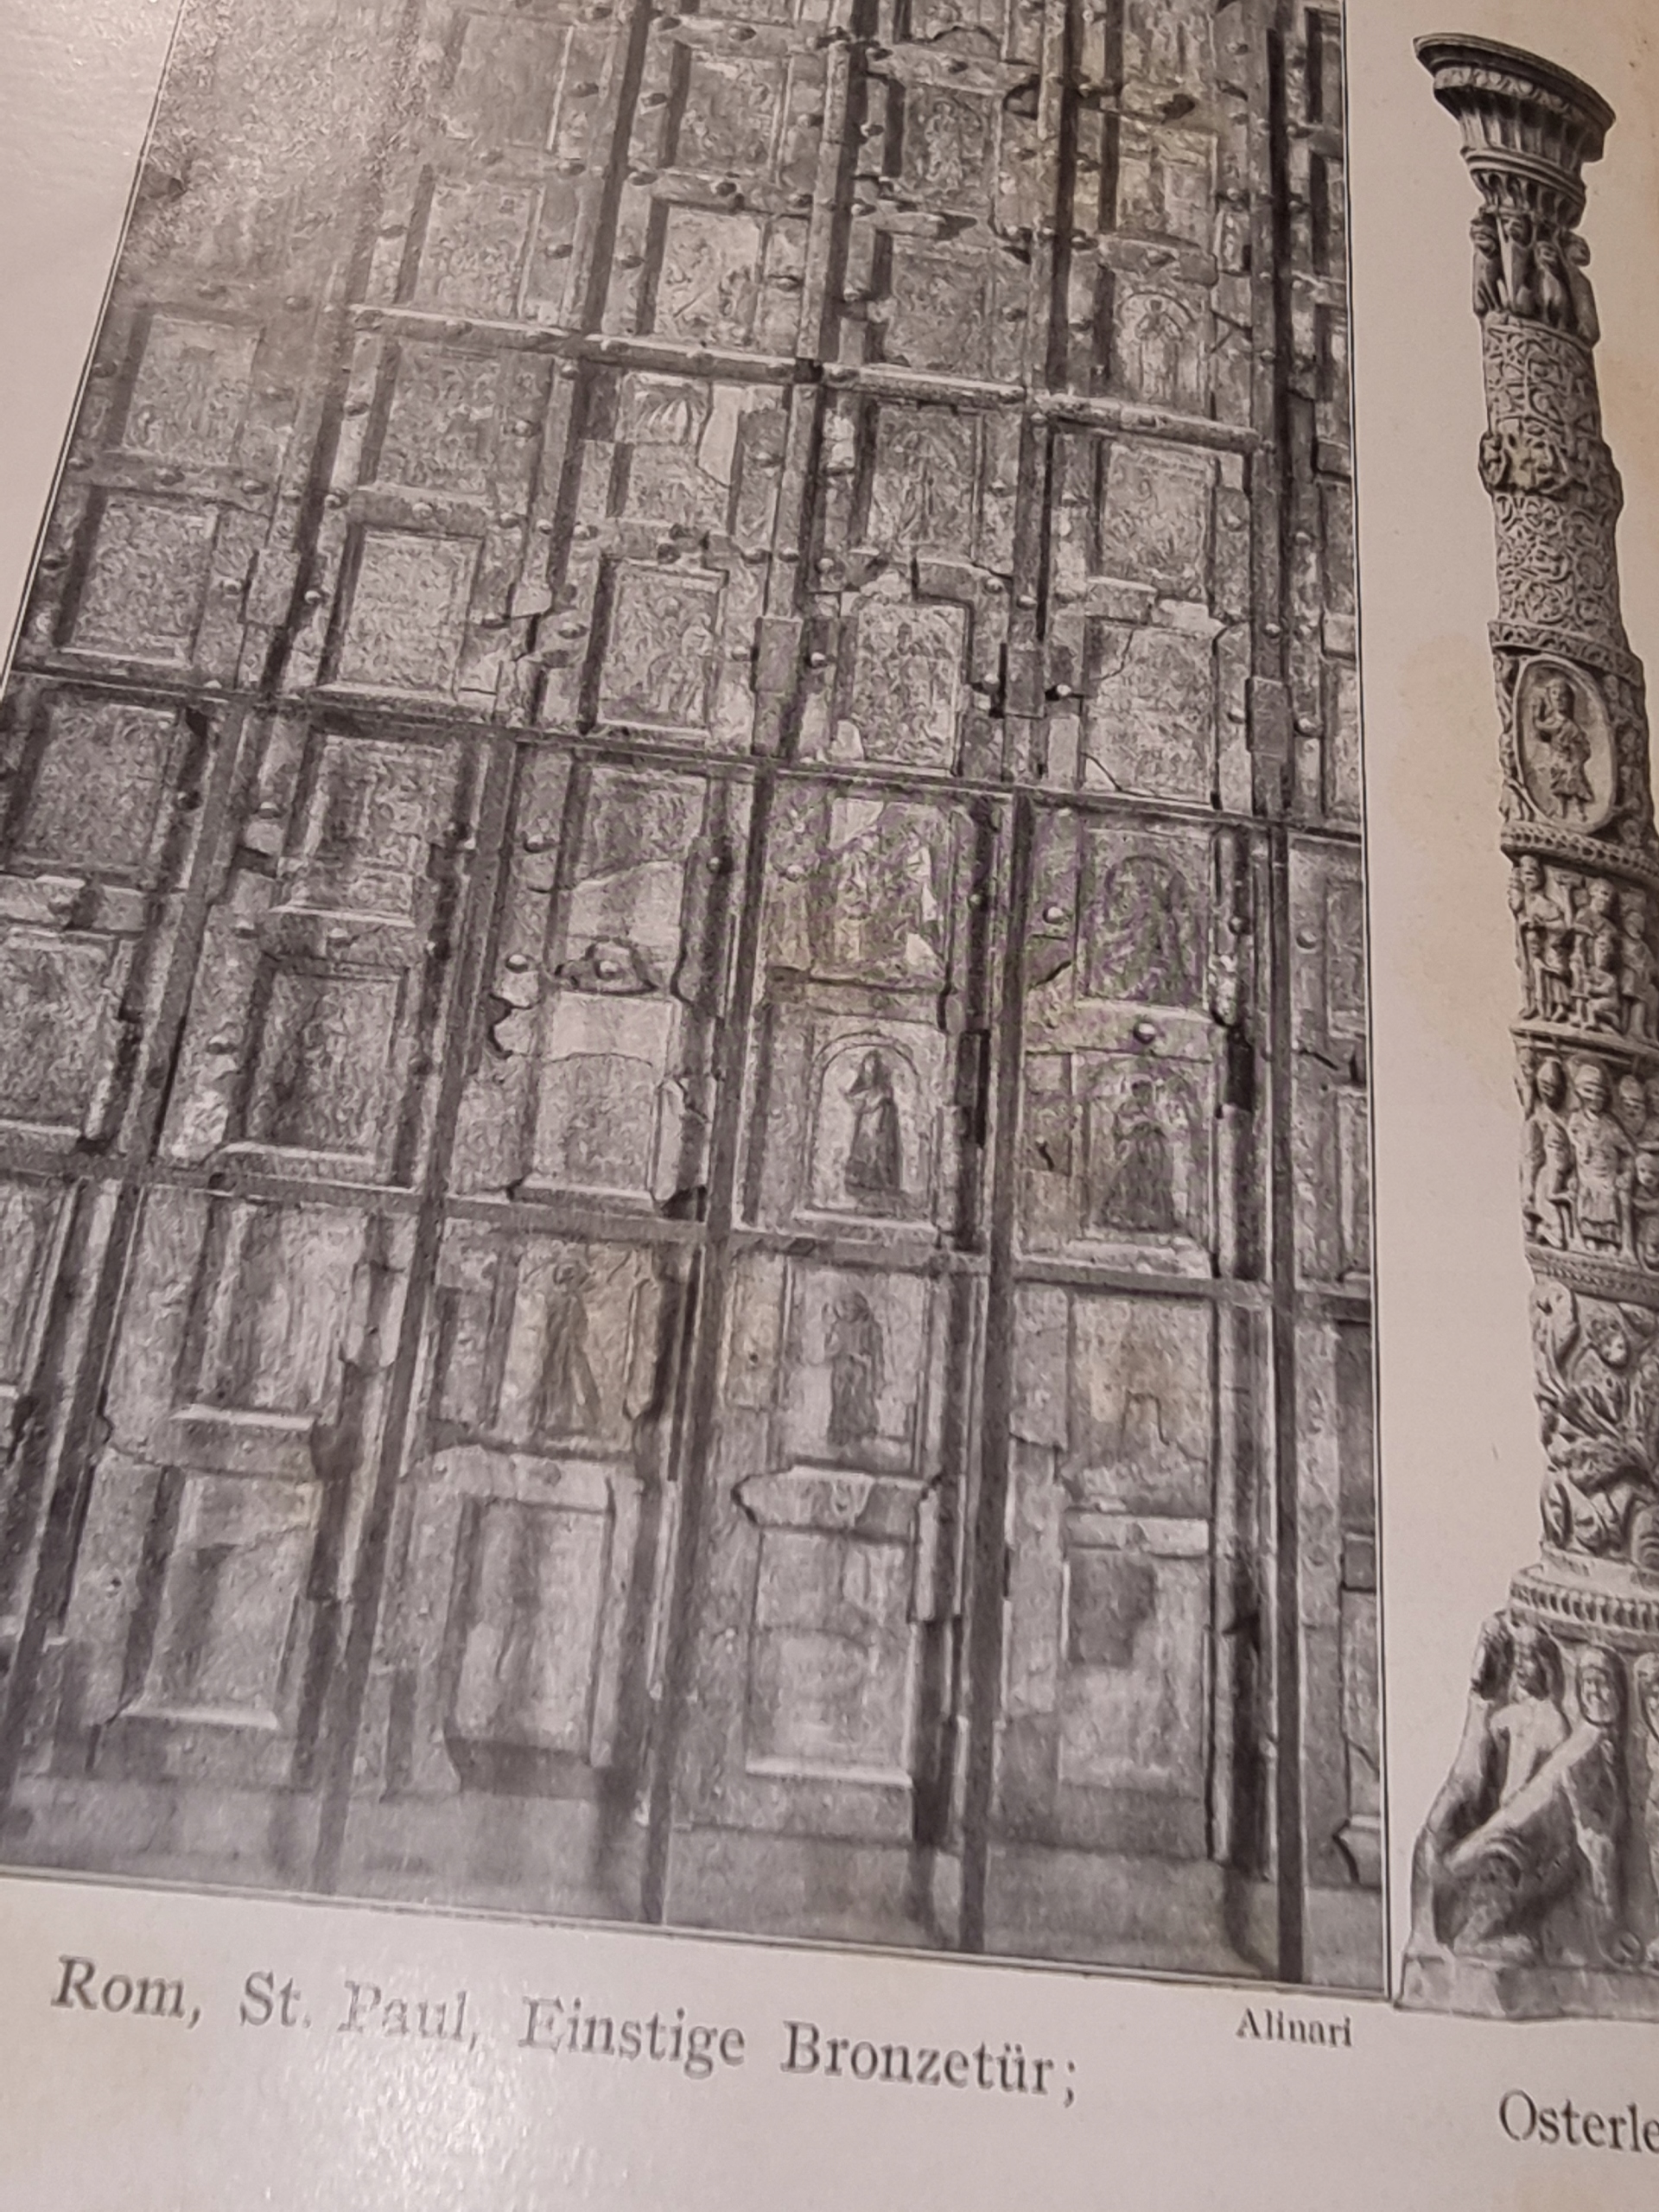 Alinari
Rom, St. Paul, Einstige Bronzetür;
Osterle